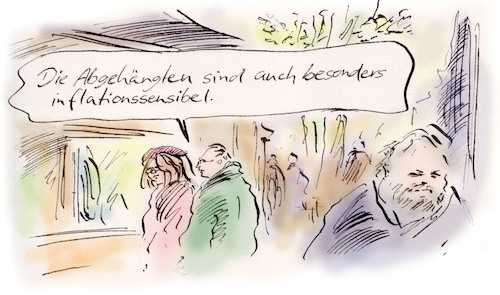 Die Abgehängten sind auch besonders
inflationssensibel.